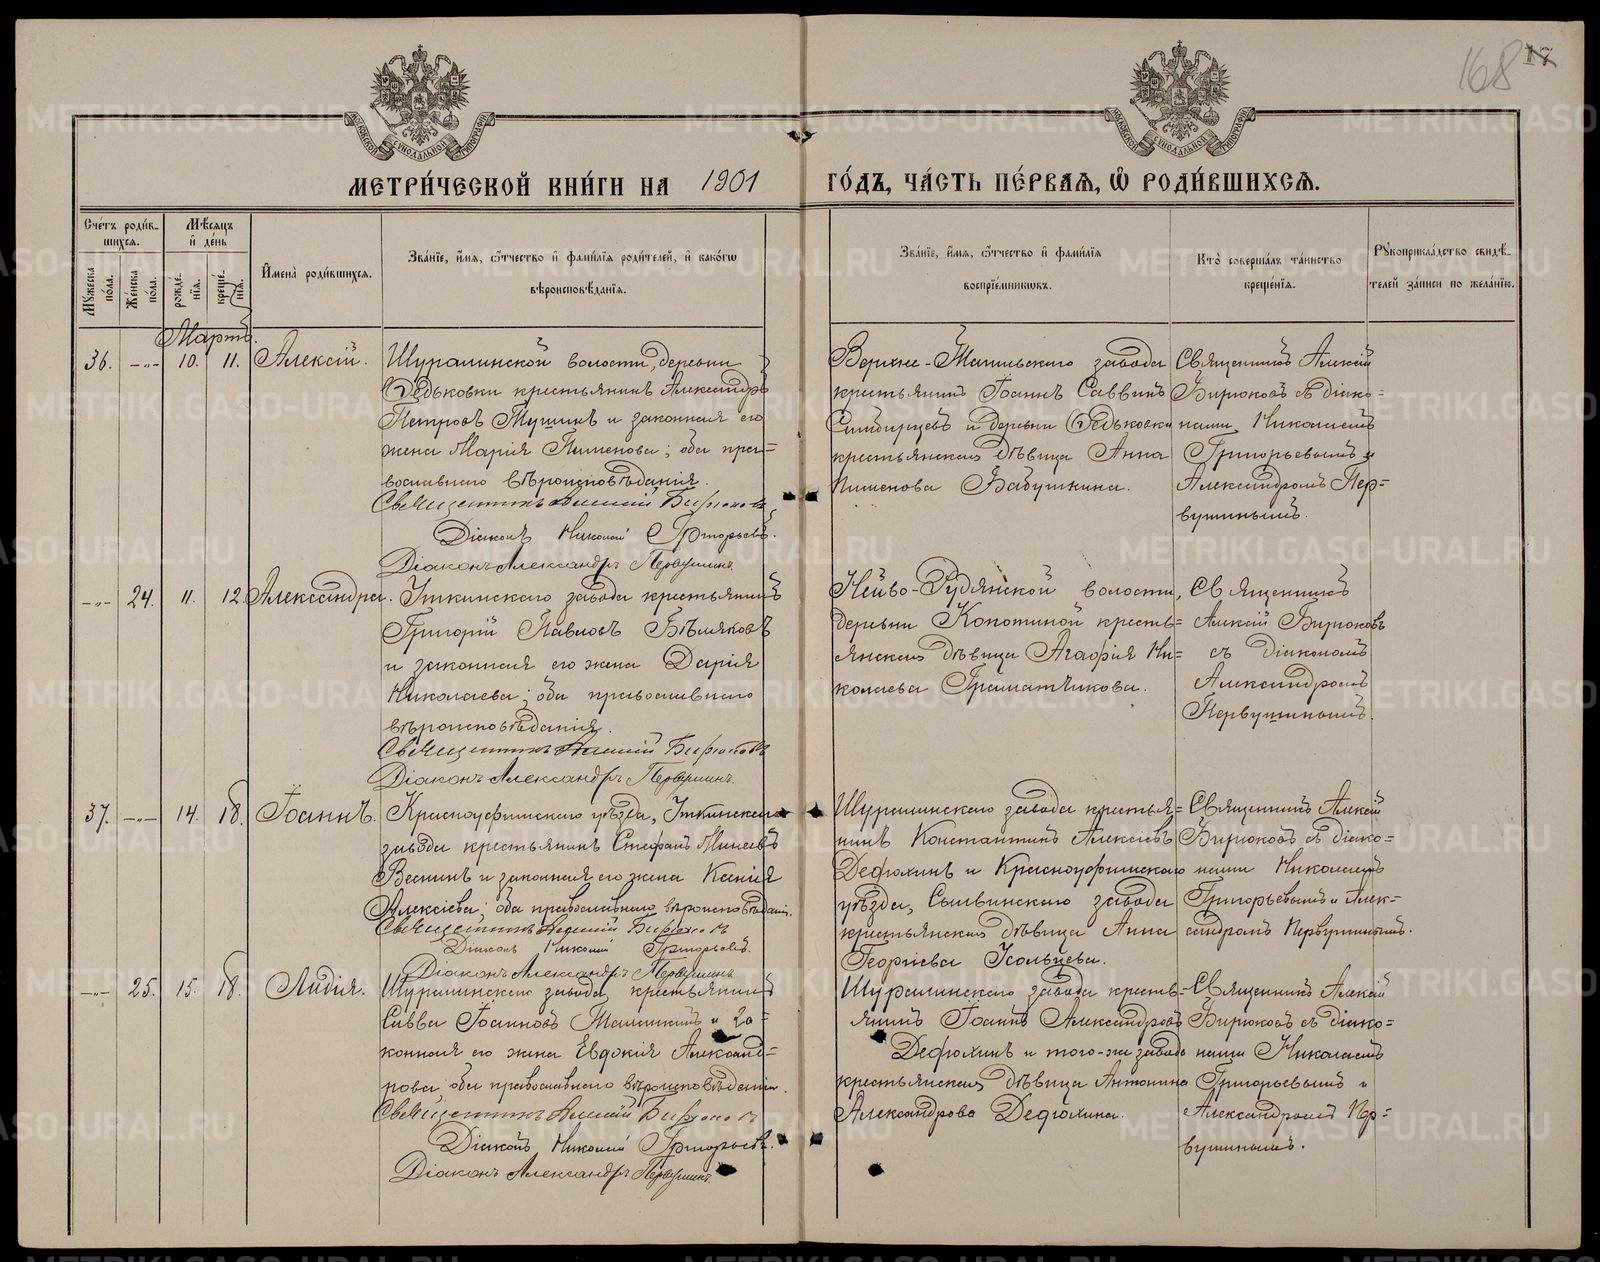 168 17
МОСКОВСКОЙ СУНОДАЛЬНОЙ ТИПОГРАФІИ
МОСКОВСКОЙ СУНОДАЛЬНОЙ ТИПОГРАФІИ
МЕТРИ́ЧЕСКОЙ КНИ́ГИ НА 1901 ГО́ДЪ, ЧА́СТЬ ПЕ́РВАѦ, Ѡ РОДИ́ВШИХСѦ.
Сче́тъ роди́в-
шихся.
Мѣ́сяцъ
и҆ де́нь
Мꙋ́жеска по́ла.
Же́нска по́ла.
рожде́нїя.
креще́нїя.
И҆мена̀ роди́вшихся.
Зва́нїе, и҆́мя, ѻ҆́тчество и҆ фами́лїя роди́телей, и҆ како́гѡ
вѣроисповѣ́данїя.
Зва́нїе, и҆́мя, ѻ҆́тчество и҆ фами́лїя
воспрїе́мникѡвъ.
Кто̀ соверша́лъ та́инство
креще́нїя.
Рꙋкоприкла́дство свидѣ́-
телей за́писи по жела́нїю.
Мартъ.
36. –„– 10. 11. Алексій.
Шуралинской волости, деревни
Ѳедьковки крестьянинъ Александръ
Петровъ Мушинъ и законная его
жена Марія Пименова; оба пра=
вославнаго вѣроисповѣданія.
Священникъ Алексій Бирюковъ
Діаконъ Николай Григорьевъ.
Діаконъ Александръ Первушинъ
Верхне-Тагильскаго завода
крестьянинъ Іоаннъ Саввинъ
Симбирцевъ и деревни Ѳедьковки
крестьянская дѣвица Анна
Пименова Бабушкина.
Священникъ Алексій
Бирюковъ съ діако=
нами Николаемъ
Григорьевымъ и
Александромъ Пер=
вушинымъ.
–„– 24. 11. 12. Александра.
Уткинскаго завода крестьянинъ
Григорій Павловъ Бѣляковъ
и законная его жена Дарія
Николаева; оба православнаго
вѣроисповѣданія.
Священникъ Алексій Бирюковъ
Діаконъ Александръ Первушинъ
Нейво-Рудянской волости,
деревни Копотиной кресть=
янская дѣвица Агафія Ни=
колаева Граматчикова.
Священникъ
Алексій Бирюковъ
съ діакономъ
Александромъ
Первушинымъ.
37. –„– 14. 18. Іоаннъ.
Красноуфимскаго уѣзда, Уткинскаго
завода крестьянинъ Стефанъ Минеевъ
Веснинъ и законная его жена Ксенія
Алексіева; оба православнаго вѣроисповѣданія.
Священникъ Алексій Бирюковъ
Діаконъ Николай Григорьевъ.
Діаконъ Александръ Первушинъ
Шуралинскаго завода крестья=
нинъ Константинъ Алексіевъ
Дефюхинъ и Красноуфимскаго
уѣзда, Сылвинскаго завода
крестьянская дѣвица Анна
Георгіева Усольцева.
Священникъ Алексій
Бирюковъ съ діако=
нами Николаемъ
Григорьевымъ и Алек=
сандромъ Первушинымъ.
–„– 25. 15. 18. Лидія.
Шуралинскаго завода крестьянинъ
Савва Іоанновъ и за=
конная его жена Евдокія Александ=
рова; оба православнаго вѣроисповѣданія.
Священникъ Алексій Бирюковъ
Діаконъ Николай Григорьевъ.
Діаконъ Александръ Первушинъ.
Шуралинскаго завода кресть=
янинъ Іоаннъ Александровъ
Дефюхинъ и того-же завода
крестьянская дѣвица Антонина
Александрова Дефюхина.
Священникъ Алексій
Бирюковъ съ діако=
нами Николаемъ
Григорьевымъ и
Александромъ Пер=
вушинымъ.
METRIKI.GASO-URAL.RU